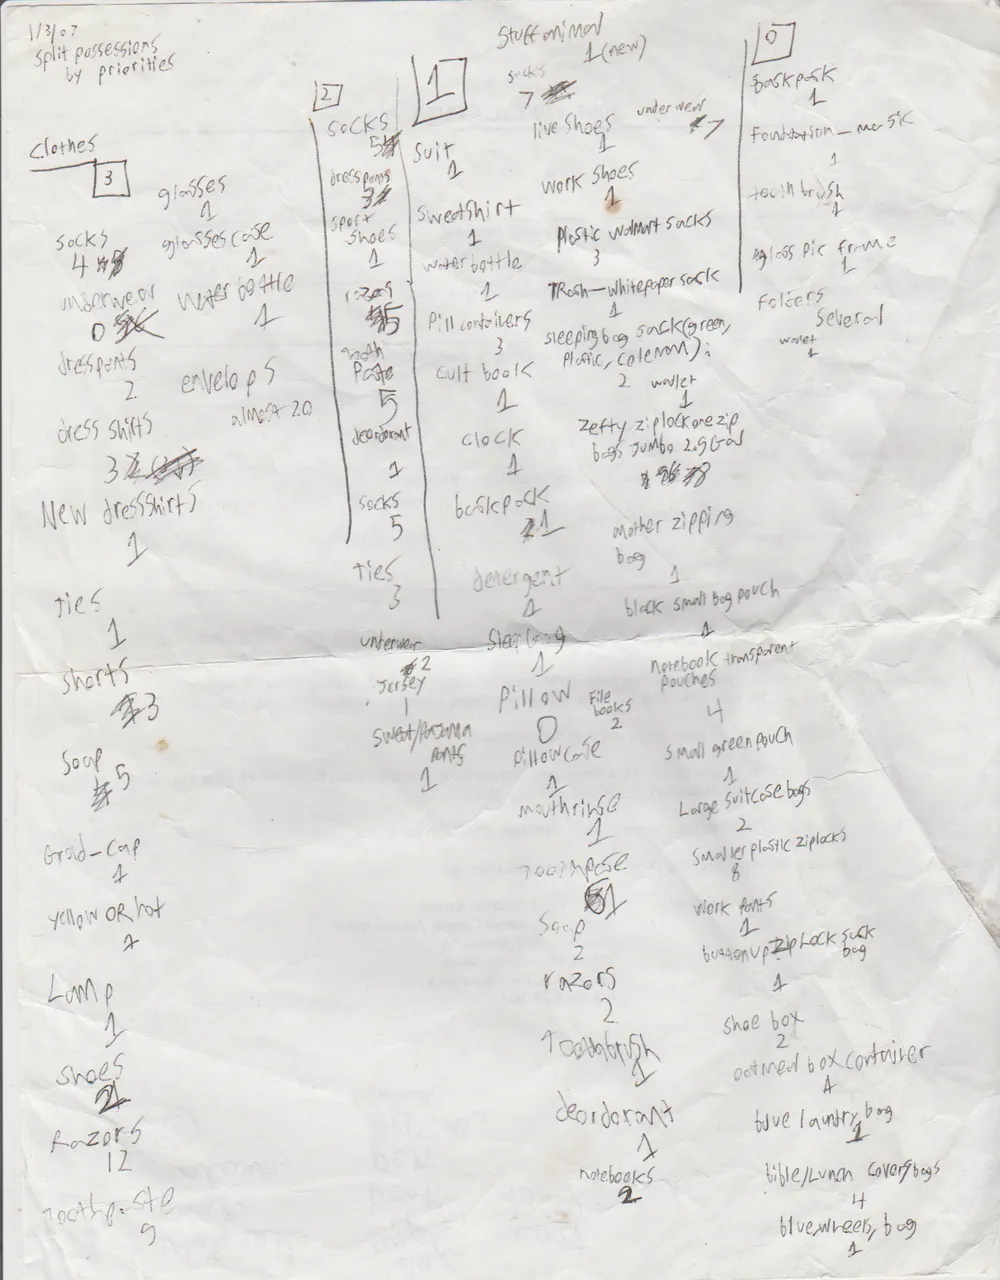 1/3/07
Split possessions
by priorities
Clothes
3
socks
4
underwear
0
dresspants
2
dress shirts
3
New dressshirts
1
ties
1
shorts
3
Soap
5
Grad-cap
1
yellow OR hat
1
Lamp
1
shoes
2
Razors
12
Toothpaste
9
glasses
1
glasses case
1
water bottle
1
envelops
almost 20
2
socks
5
dresspants
3
sport
shoes
1
razors
5
tooth
Paste
5
deordorant
1
socks
5
ties
3
underwear
2
Jersey
1
sweat/Pajama
pants
1
1
suit
1
sweatshirt
1
water bottle
1
Pill containers
3
cult book
1
clock
1
backpack
1
detergent
1
Sleepbag
1
Pillow
0
Pillowcase
1
mouthrinse
1
1
Soap
2
razors
2
Toothbrush
1
deordorant
1
notebooks
2
Stuff animal
1 (new)
socks
7
underwear
7
live shoes
1
work shoes
1
Plastic walmart sacks
3
TRash-whitepaper sack
1
sleeping bag sack (green,
Plastic, coleman):
2
wallet
1
zefty ziplock one zip
bags jumbo 2.5 Gal
8
another zipping
bag
1
black small bag pouch
1
notebook transparent
pouches
4
File
books
2
small green pouch
1
Large suitcase bags
2
smaller plastic ziplocks
8
work pants
1
button up ZipLock sack
bag
1
shoe box
2
oatmeal box container
1
blue laundry bag
1
bible/Lunch covers/bags
4
blue, wheels, bag
1
0
backpack
1
Foundation-music
1
tooth brush
1
glass pic frame
1
Folders
several
wallet
1